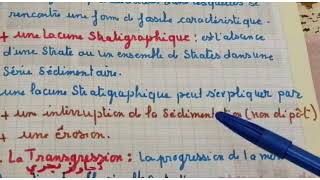 rencontre une forme de fossile caractéristique.
+ une lacune Stratigraphique : est l'absence
d'une Strate ou un ensemble de Strates dans une
Série Sédimentaire.
une lacune Stratigraphique peut s'expliquer par
+ un interruption de la Sédimentation (non dépôt)
+ une érosion.
. La Transgression : La progression de la mer
تجاوز بحري